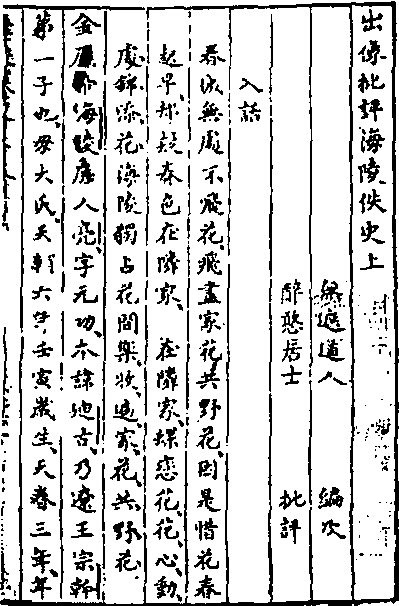 出像批評海陵佚史上
無遮道人 編次
醉憨居士 批評
入話
春城無處不飛花、飛盡家花共野花、因是惜花春
起早、却疑春色在隣家、在隣家、蝶恋花、花心動、
處錦添花、海陵獨占花間樂、狄過家花共野花
金廢帝海陵庶人亮、字元功、本諱迪古、乃遼王宗幹
第一子也、母大氏、天輔六年壬寅歲生、天眷三年、年